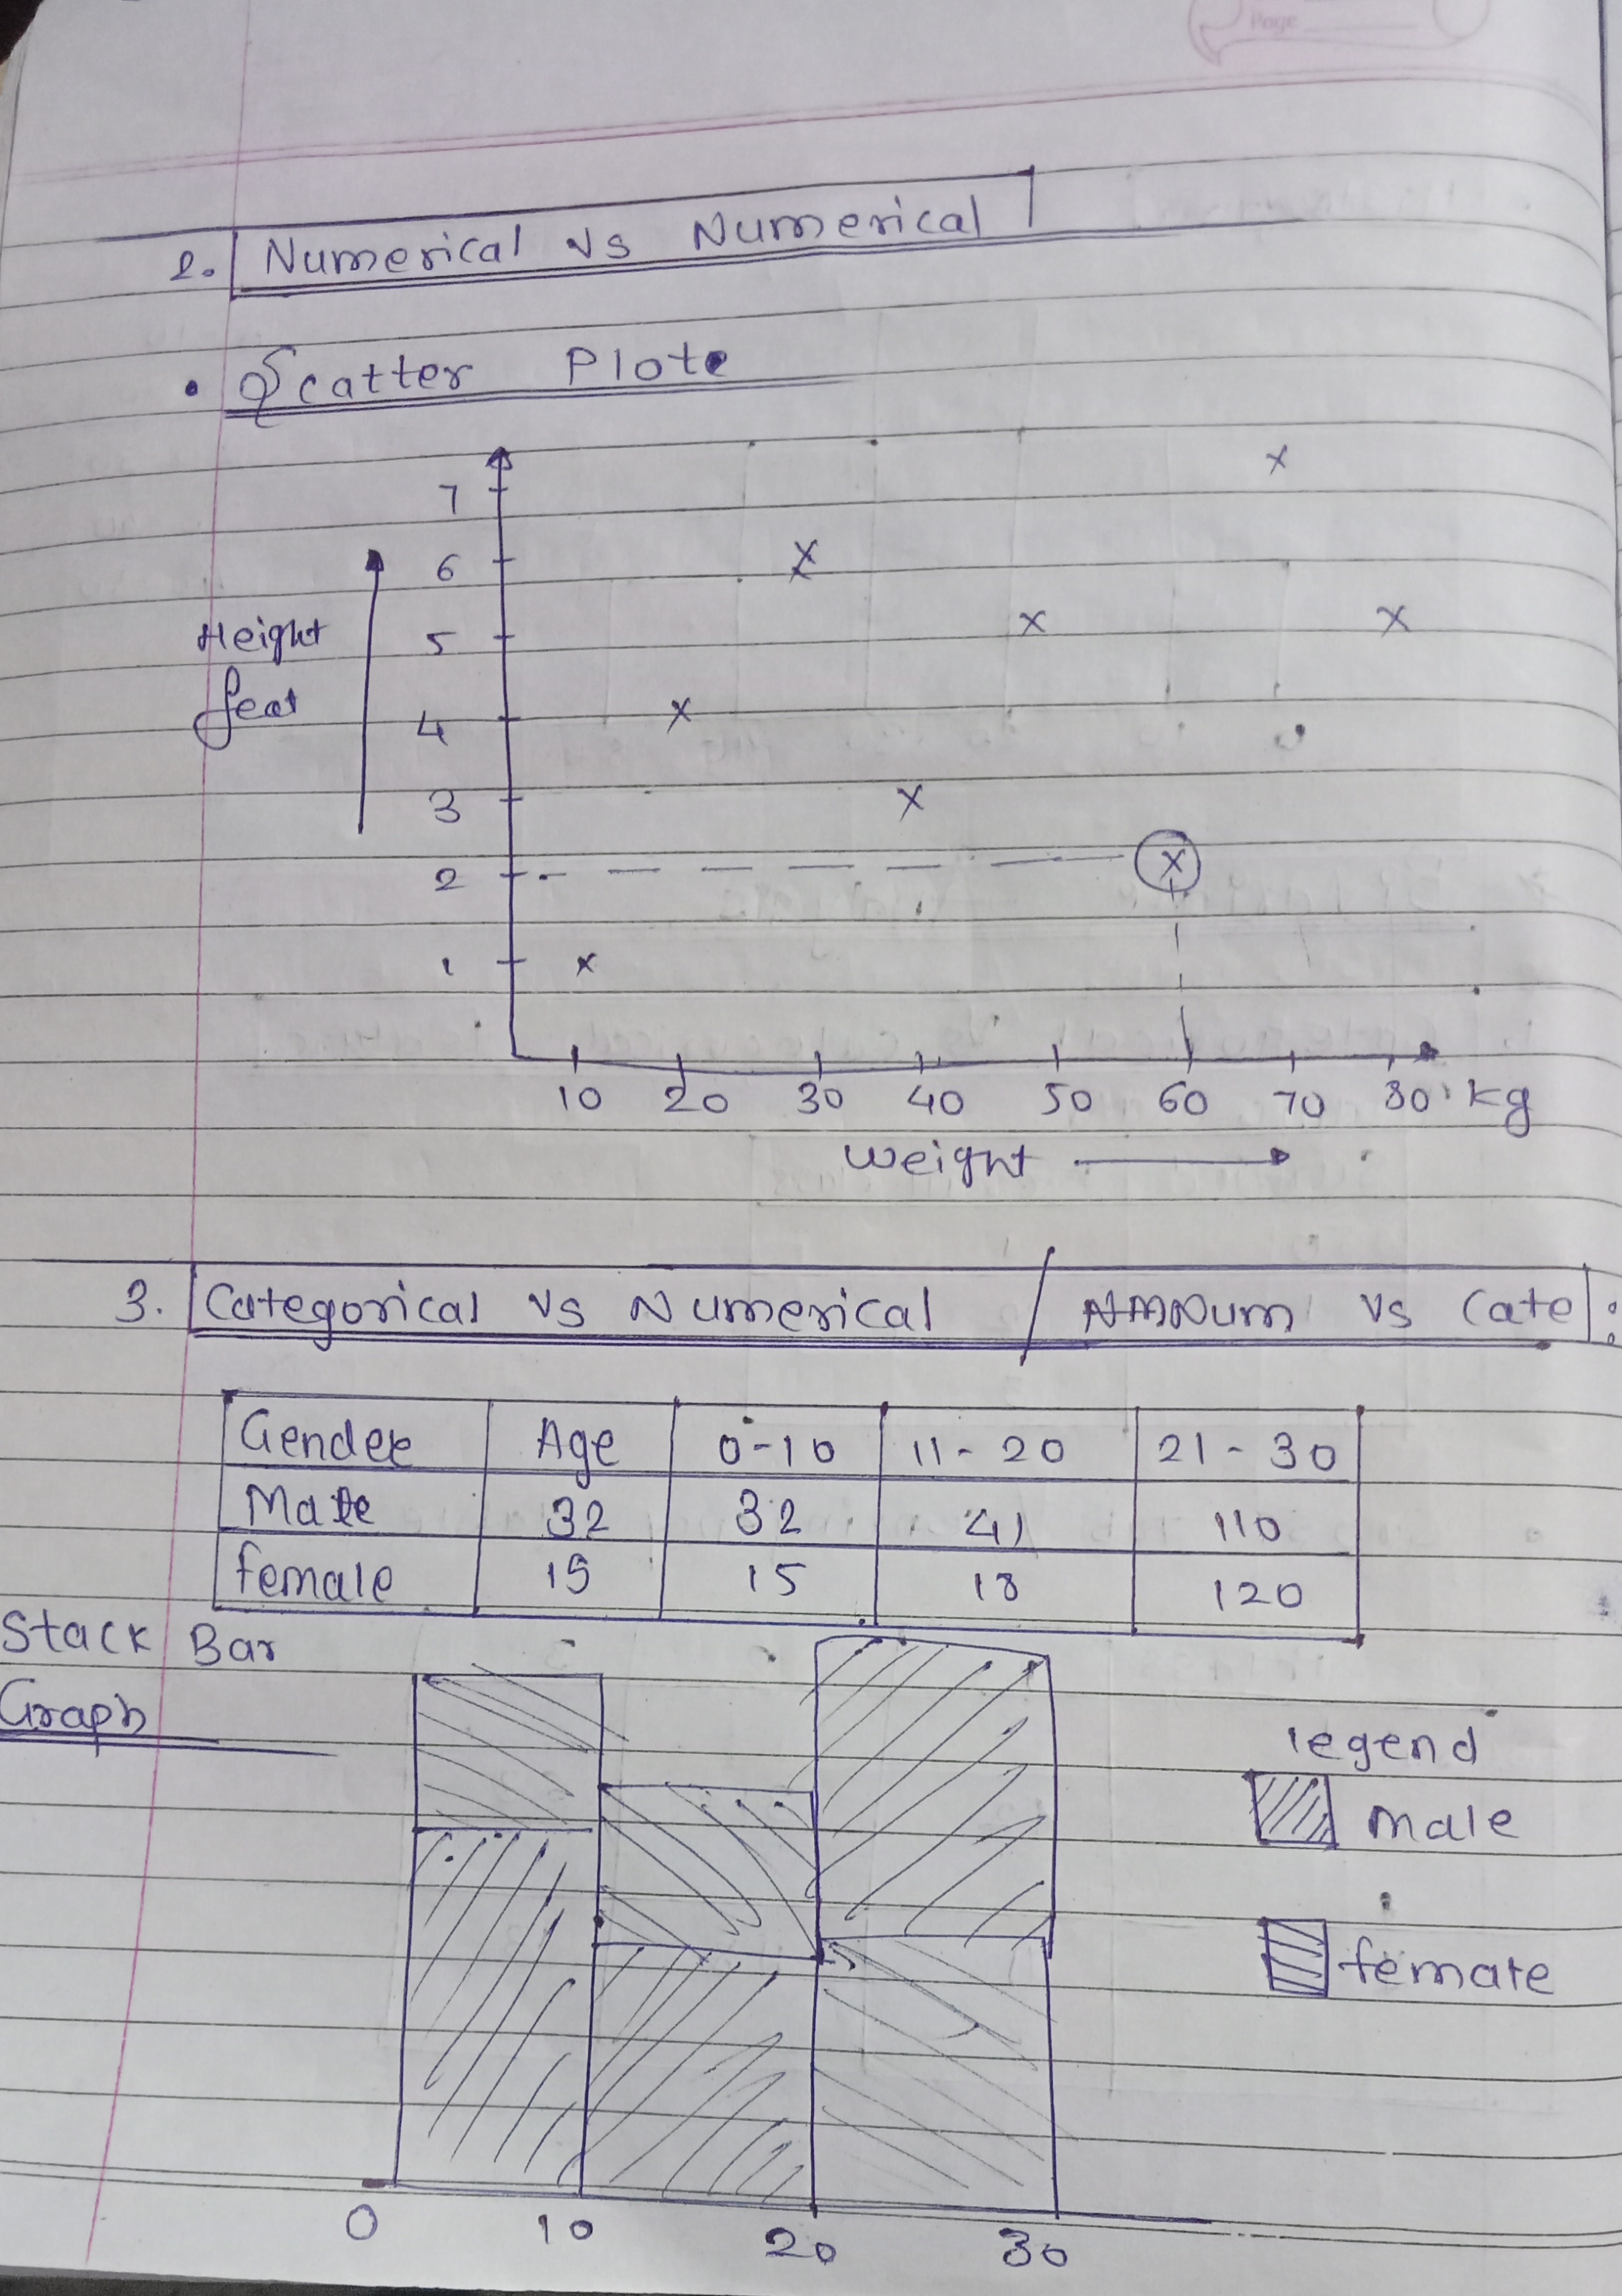 Page
2. Numerical Vs Numerical
• Scatter Plote
7
6
Height
5
feet
4
3
2
1
10 20 30 40 50 60 70 80 kg
weight
3. Categorical Vs Numerical / Num Vs Cate :
Gender Age 0-10 11-20 21-30
Male 32 32 41 110
female 15 15 18 120
Stack Bar
Graph
legend
male
female
0 10 20 30